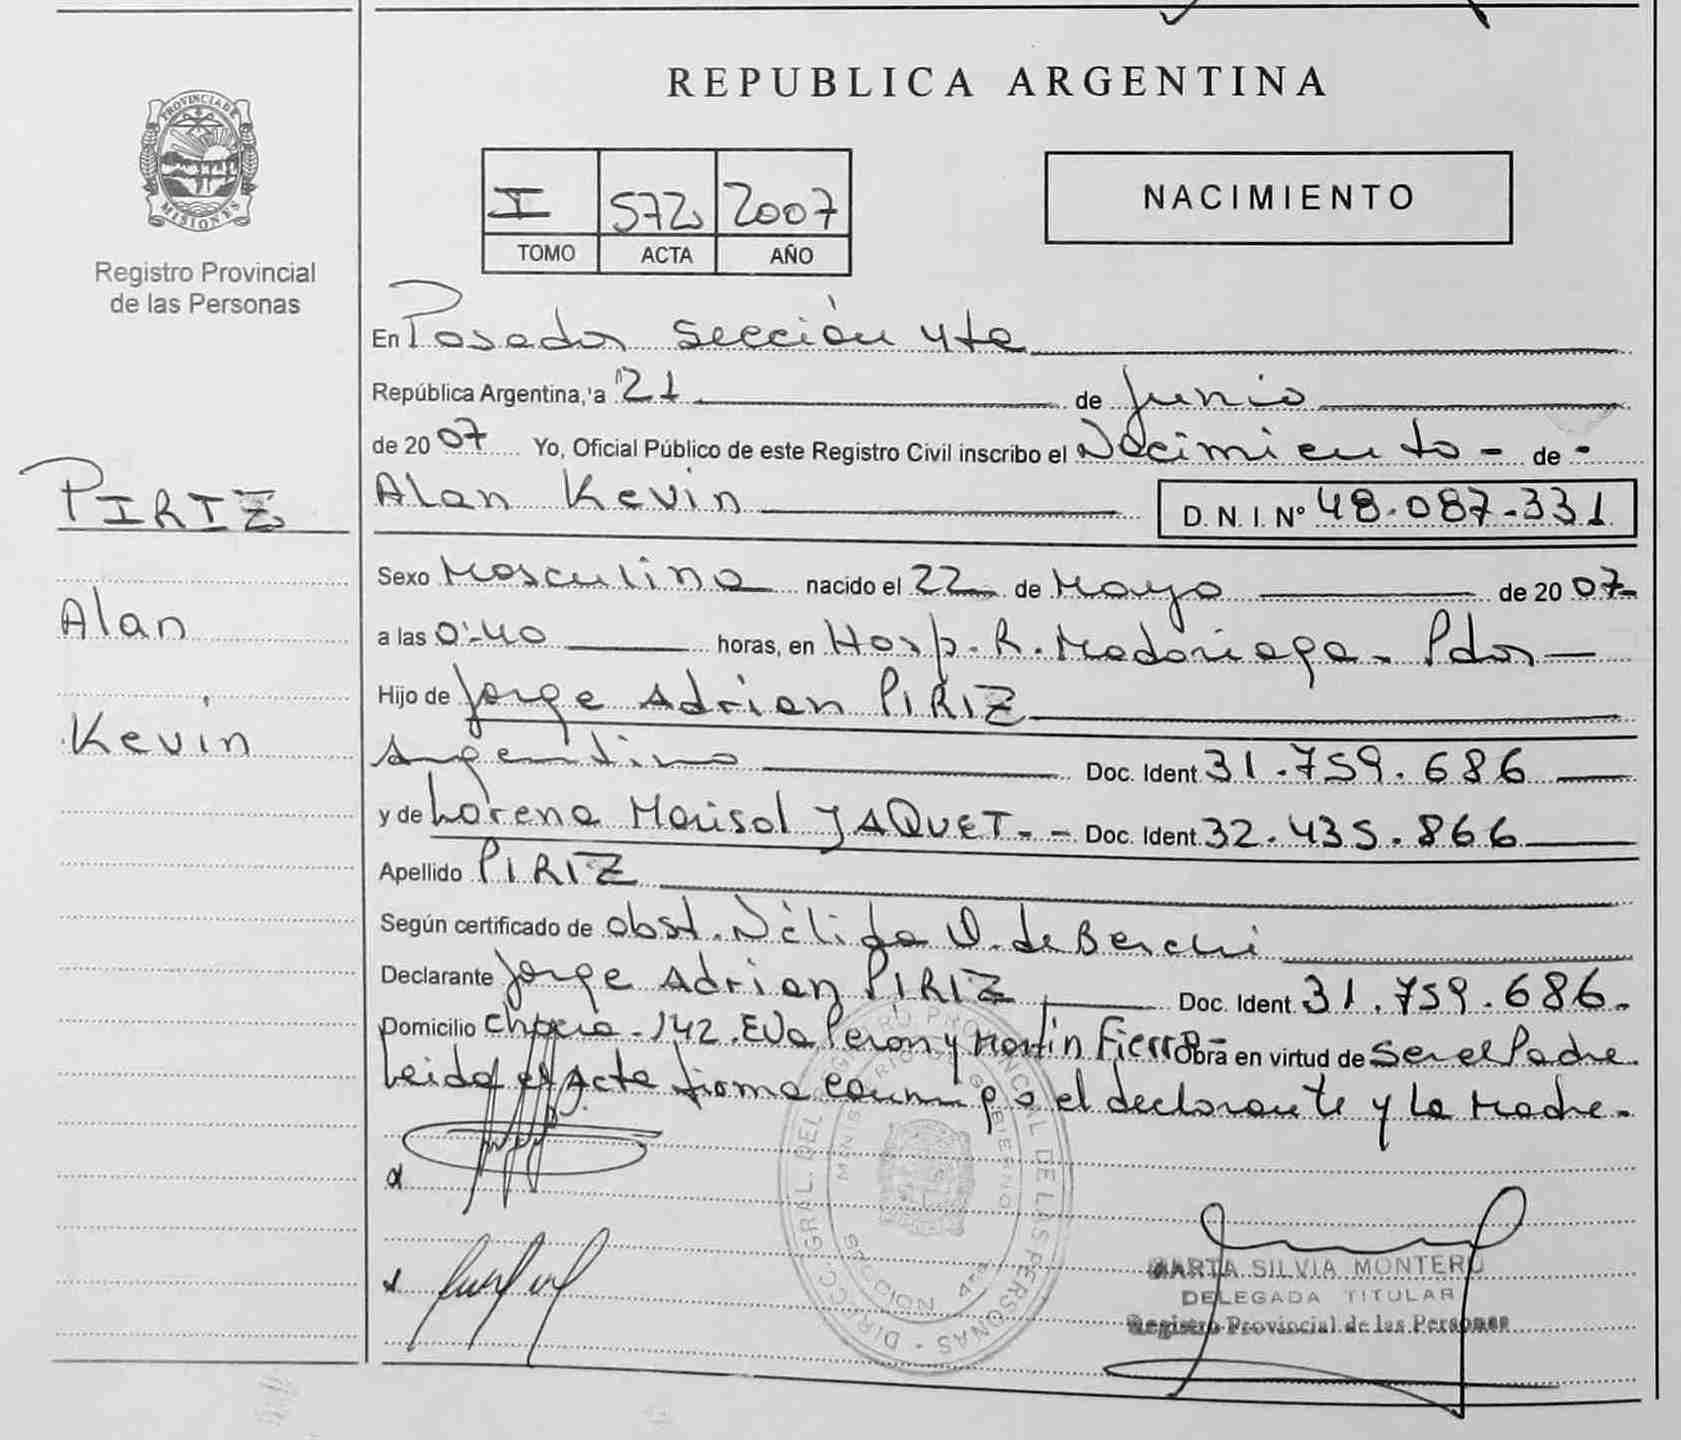 REPUBLICA ARGENTINA
PROVINCIA DE
MISIONES
Registro Provincial
de las Personas
I 572 2007
TOMO ACTA AÑO
NACIMIENTO
En Posadas sección 4ta
República Argentina, a 21 de Junio
de 2007 Yo, Oficial Público de este Registro Civil inscribo el Nacimiento - de -
Alan Kevin D. N. I. Nº 48.087.331
PIRIZ
Alan
Kevin
Sexo Masculino nacido el 22 de Mayo de 2007
a las 0:40 horas, en Hosp. R. Madariaga - Pdas
Hijo de Jorge Adrian PIRIZ
Argentino Doc. Ident 31.759.686
y de Lorena Marisol JAQUET - - Doc. Ident. 32.435.866
Apellido PIRIZ
Según certificado de obst. Nélida O. de Berchi
Declarante Jorge Adrian PIRIZ Doc. Ident. 31.759.686.
Domicilio Chacra - 142. Eva Perón y Martin Fierro Obra en virtud de Ser el Padre
Leida el Acta firma conmigo el declarante y la Madre.
DIRECC. GRAL. DEL REGISTRO PROVINCIAL DE LAS PERSONAS
MINISTERIO GOBIERNO
4ta
MARTA SILVIA MONTERO
DELEGADA TITULAR
Registro Provincial de las Personas